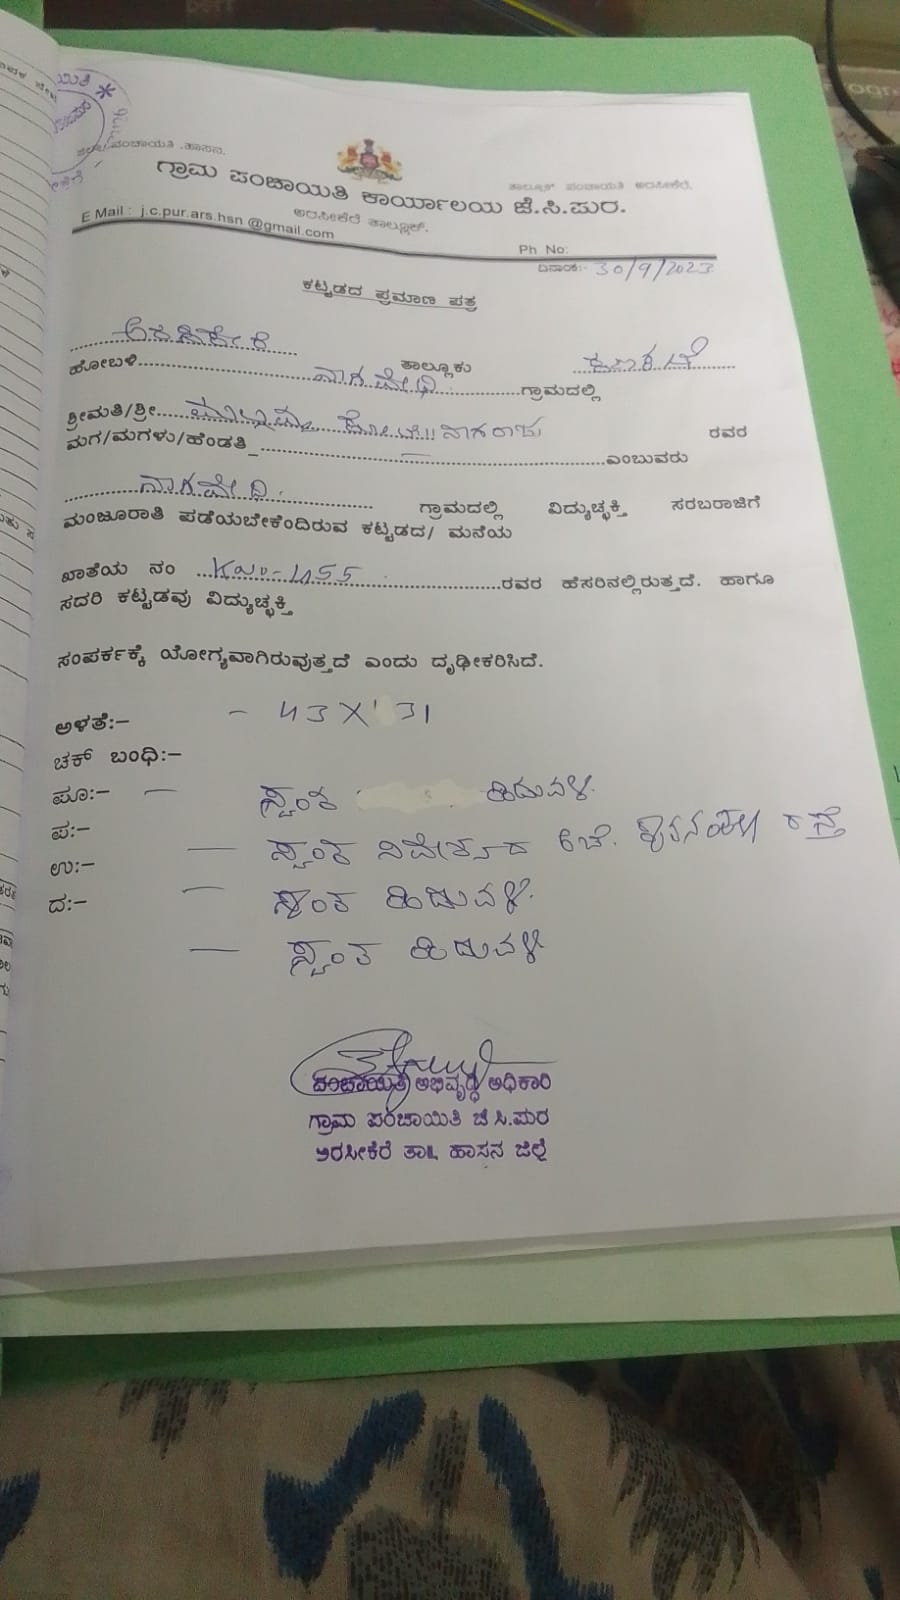 ಜಿಲ್ಲಾ ಪಂಚಾಯಿತಿ .ಹಾಸನ.
ತಾಲ್ಲೂಕ್ ಪಂಚಾಯಿತಿ ಅರಸೀಕೆರೆ.
ಗ್ರಾಮ ಪಂಚಾಯಿತಿ ಕಾರ್ಯಾಲಯ ಜೆ.ಸಿ.ಪುರ.
ಅರಸೀಕೆರೆ ತಾಲ್ಲೂಕ್.
E Mail : j.c.pur.ars.hsn @gmail.com
Ph No:
ದಿನಾಂಕ:- 30/9/2023
ಕಟ್ಟಡದ ಪ್ರಮಾಣ ಪತ್ರ
ಅರಸೀಕೆರೆ ತಾಲ್ಲೂಕು
ಹೋಬಳಿ ನಾಗವೇದಿ ಗ್ರಾಮದಲ್ಲಿ
ಶ್ರೀಮತಿ/ಶ್ರೀ ನಾಗರಾಜು ರವರ
ಮಗ/ಮಗಳು/ಹೆಂಡತಿ_ ಎಂಬುವರು
ನಾಗವೇದಿ. ಗ್ರಾಮದಲ್ಲಿ ವಿದ್ಯುಚ್ಛಕ್ತಿ ಸರಬರಾಜಿಗೆ
ಮಂಜೂರಾತಿ ಪಡೆಯಬೇಕೆಂದಿರುವ ಕಟ್ಟಡದ/ ಮನೆಯ
ಖಾತೆಯ ನಂ 455 ರವರ ಹೆಸರಿನಲ್ಲಿರುತ್ತದೆ. ಹಾಗೂ
ಸದರಿ ಕಟ್ಟಡವು ವಿದ್ಯುಚ್ಛಕ್ತಿ
ಸಂಪರ್ಕಕ್ಕೆ ಯೋಗ್ಯವಾಗಿರುವುತ್ತದೆ ಎಂದು ದೃಢೀಕರಿಸಿದೆ.
ಅಳತೆ:- - 43 X 31
ಚಕ್ ಬಂಧಿ:-
ಪೂ:- - ಸ್ವಂತ ಹಿಡುವಳಿ.
ಪ:- - ಸ್ವಂತ ನಿವೇಶನ ರಸ್ತೆ
ಉ:- - ಸ್ವಂತ ಹಿಡುವಳಿ.
ದ:- - ಸ್ವಂತ ಹಿಡುವಳಿ
ಪಂಚಾಯಿತಿ ಅಭಿವೃದ್ಧಿ ಅಧಿಕಾರಿ
ಗ್ರಾಮ ಪಂಚಾಯಿತಿ ಜೆ.ಸಿ.ಪುರ
ಅರಸೀಕೆರೆ ತಾ॥ ಹಾಸನ ಜಿಲ್ಲೆ